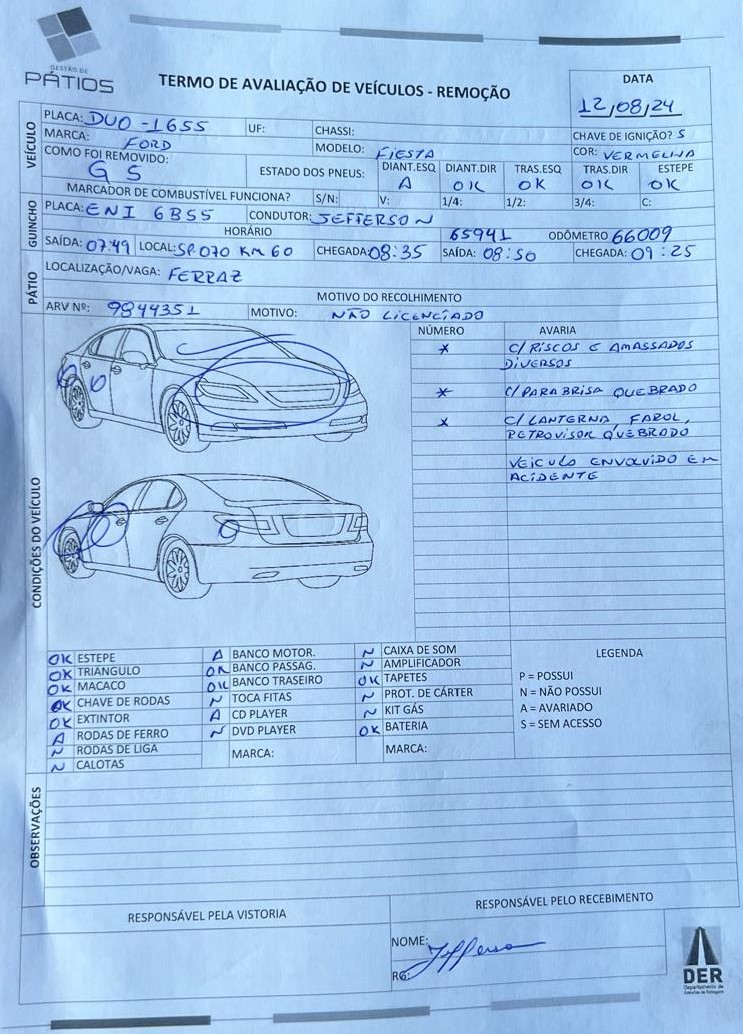 GESTÃO DE
PÁTIOS
TERMO DE AVALIAÇÃO DE VEÍCULOS - REMOÇÃO
DATA
12/08/24
VEÍCULO
PLACA: DUO-1655 UF: CHASSI: CHAVE DE IGNIÇÃO? S
MARCA: FORD MODELO: FIESTA COR: VERMELHA
COMO FOI REMOVIDO: GS ESTADO DOS PNEUS: DIANT.ESQ A DIANT.DIR OK TRAS.ESQ OK TRAS.DIR OK ESTEPE OK
MARCADOR DE COMBUSTÍVEL FUNCIONA? S/N: V: 1/4: 1/2: 3/4: C:
GUINCHO
PLACA: ENI 6B55 CONDUTOR: JEFFERSON
HORÁRIO 65941 ODÔMETRO 66009
SAÍDA: 07:49 LOCAL: SP.070 KM 60 CHEGADA: 08:35 SAÍDA: 08:50 CHEGADA: 09:25
PÁTIO
LOCALIZAÇÃO/VAGA: FERRAZ
MOTIVO DO RECOLHIMENTO
ARV Nº: 9844351 MOTIVO: NÃO LICENCIADO
CONDIÇÕES DO VEÍCULO
NÚMERO AVARIA
* C/ RISCOS E AMASSADOS
DIVERSOS
* C/ PARABRISA QUEBRADO
* C/ LANTERNA, FAROL,
RETROVISOR QUEBRADO
VEICULO ENVOLVIDO EM
ACIDENTE
OK ESTEPE
OK TRIÂNGULO
OK MACACO
OK CHAVE DE RODAS
OK EXTINTOR
A RODAS DE FERRO
N RODAS DE LIGA
N CALOTAS
A BANCO MOTOR.
OK BANCO PASSAG.
OK BANCO TRASEIRO
N TOCA FITAS
A CD PLAYER
N DVD PLAYER
MARCA:
N CAIXA DE SOM
N AMPLIFICADOR
OK TAPETES
N PROT. DE CÁRTER
N KIT GÁS
OK BATERIA
MARCA:
LEGENDA
P = POSSUI
N = NÃO POSSUI
A = AVARIADO
S = SEM ACESSO
OBSERVAÇÕES
RESPONSÁVEL PELA VISTORIA
RESPONSÁVEL PELO RECEBIMENTO
NOME: Jefferson
RG:
DER
Departamento de
Estradas de Rodagem